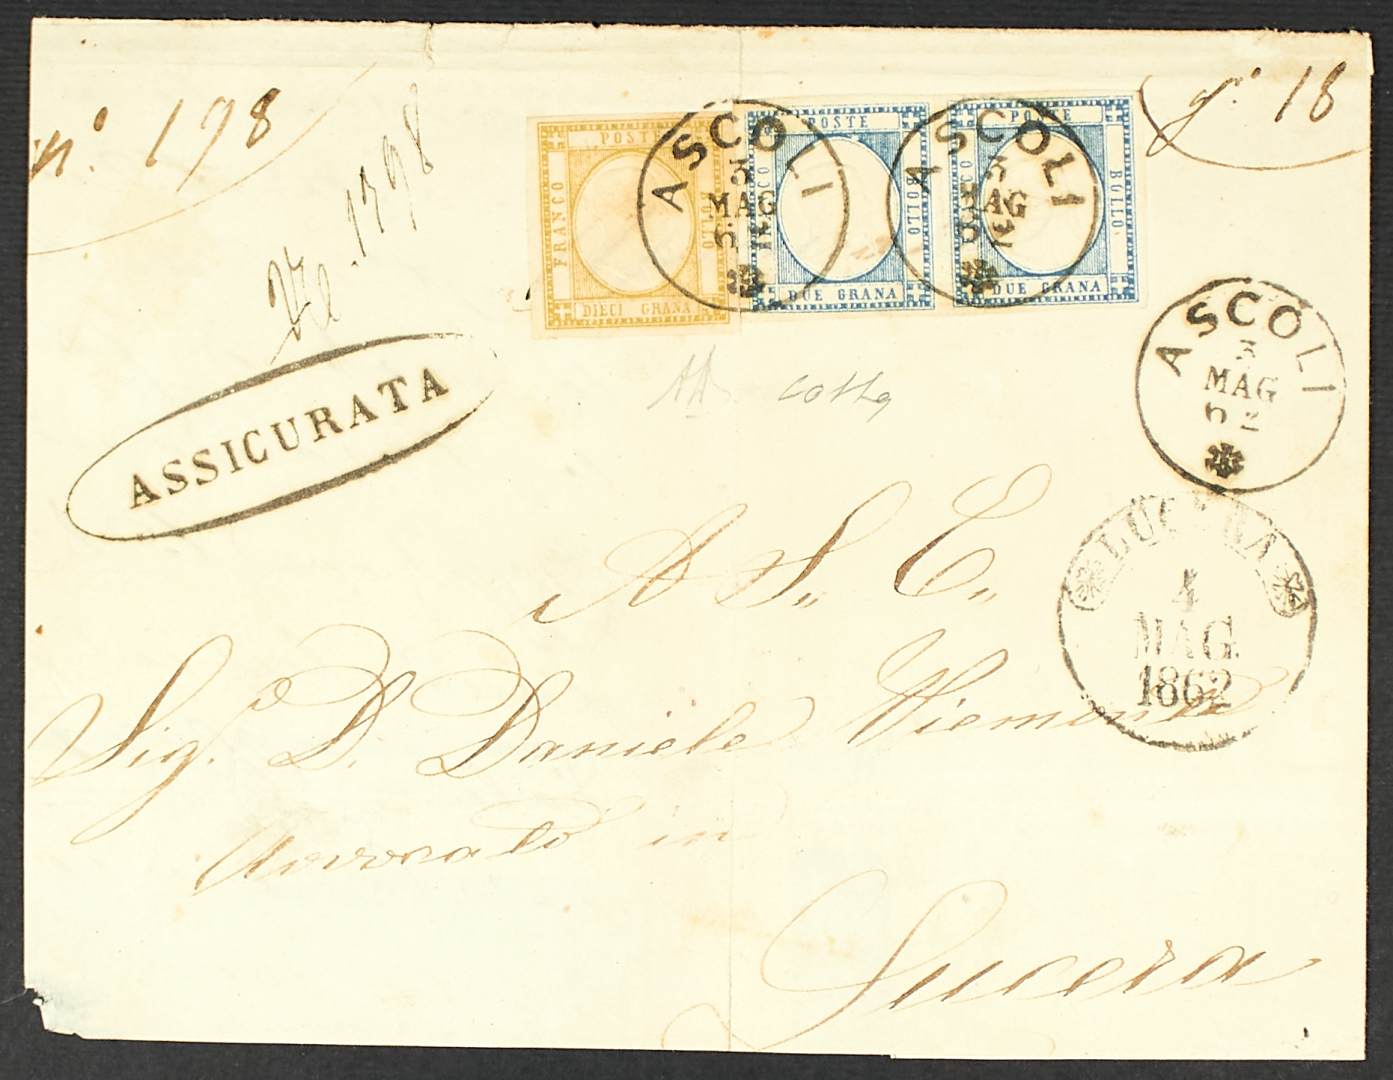 n.º 198
g.ª 18
198
FRANCO POSTE BOLLO
DIECI GRANA
FRANCO POSTE BOLLO
DUE GRANA
FRANCO POSTE BOLLO
DUE GRANA
ASCOLI
3
MAG
62
ASCOLI
3
MAG
62
ASCOLI
3
MAG
62
ASSICURATA
LUCERA
4
MAG.
1862
A S. E.
Sig. D. Daniele
Avvocato in
Lucera